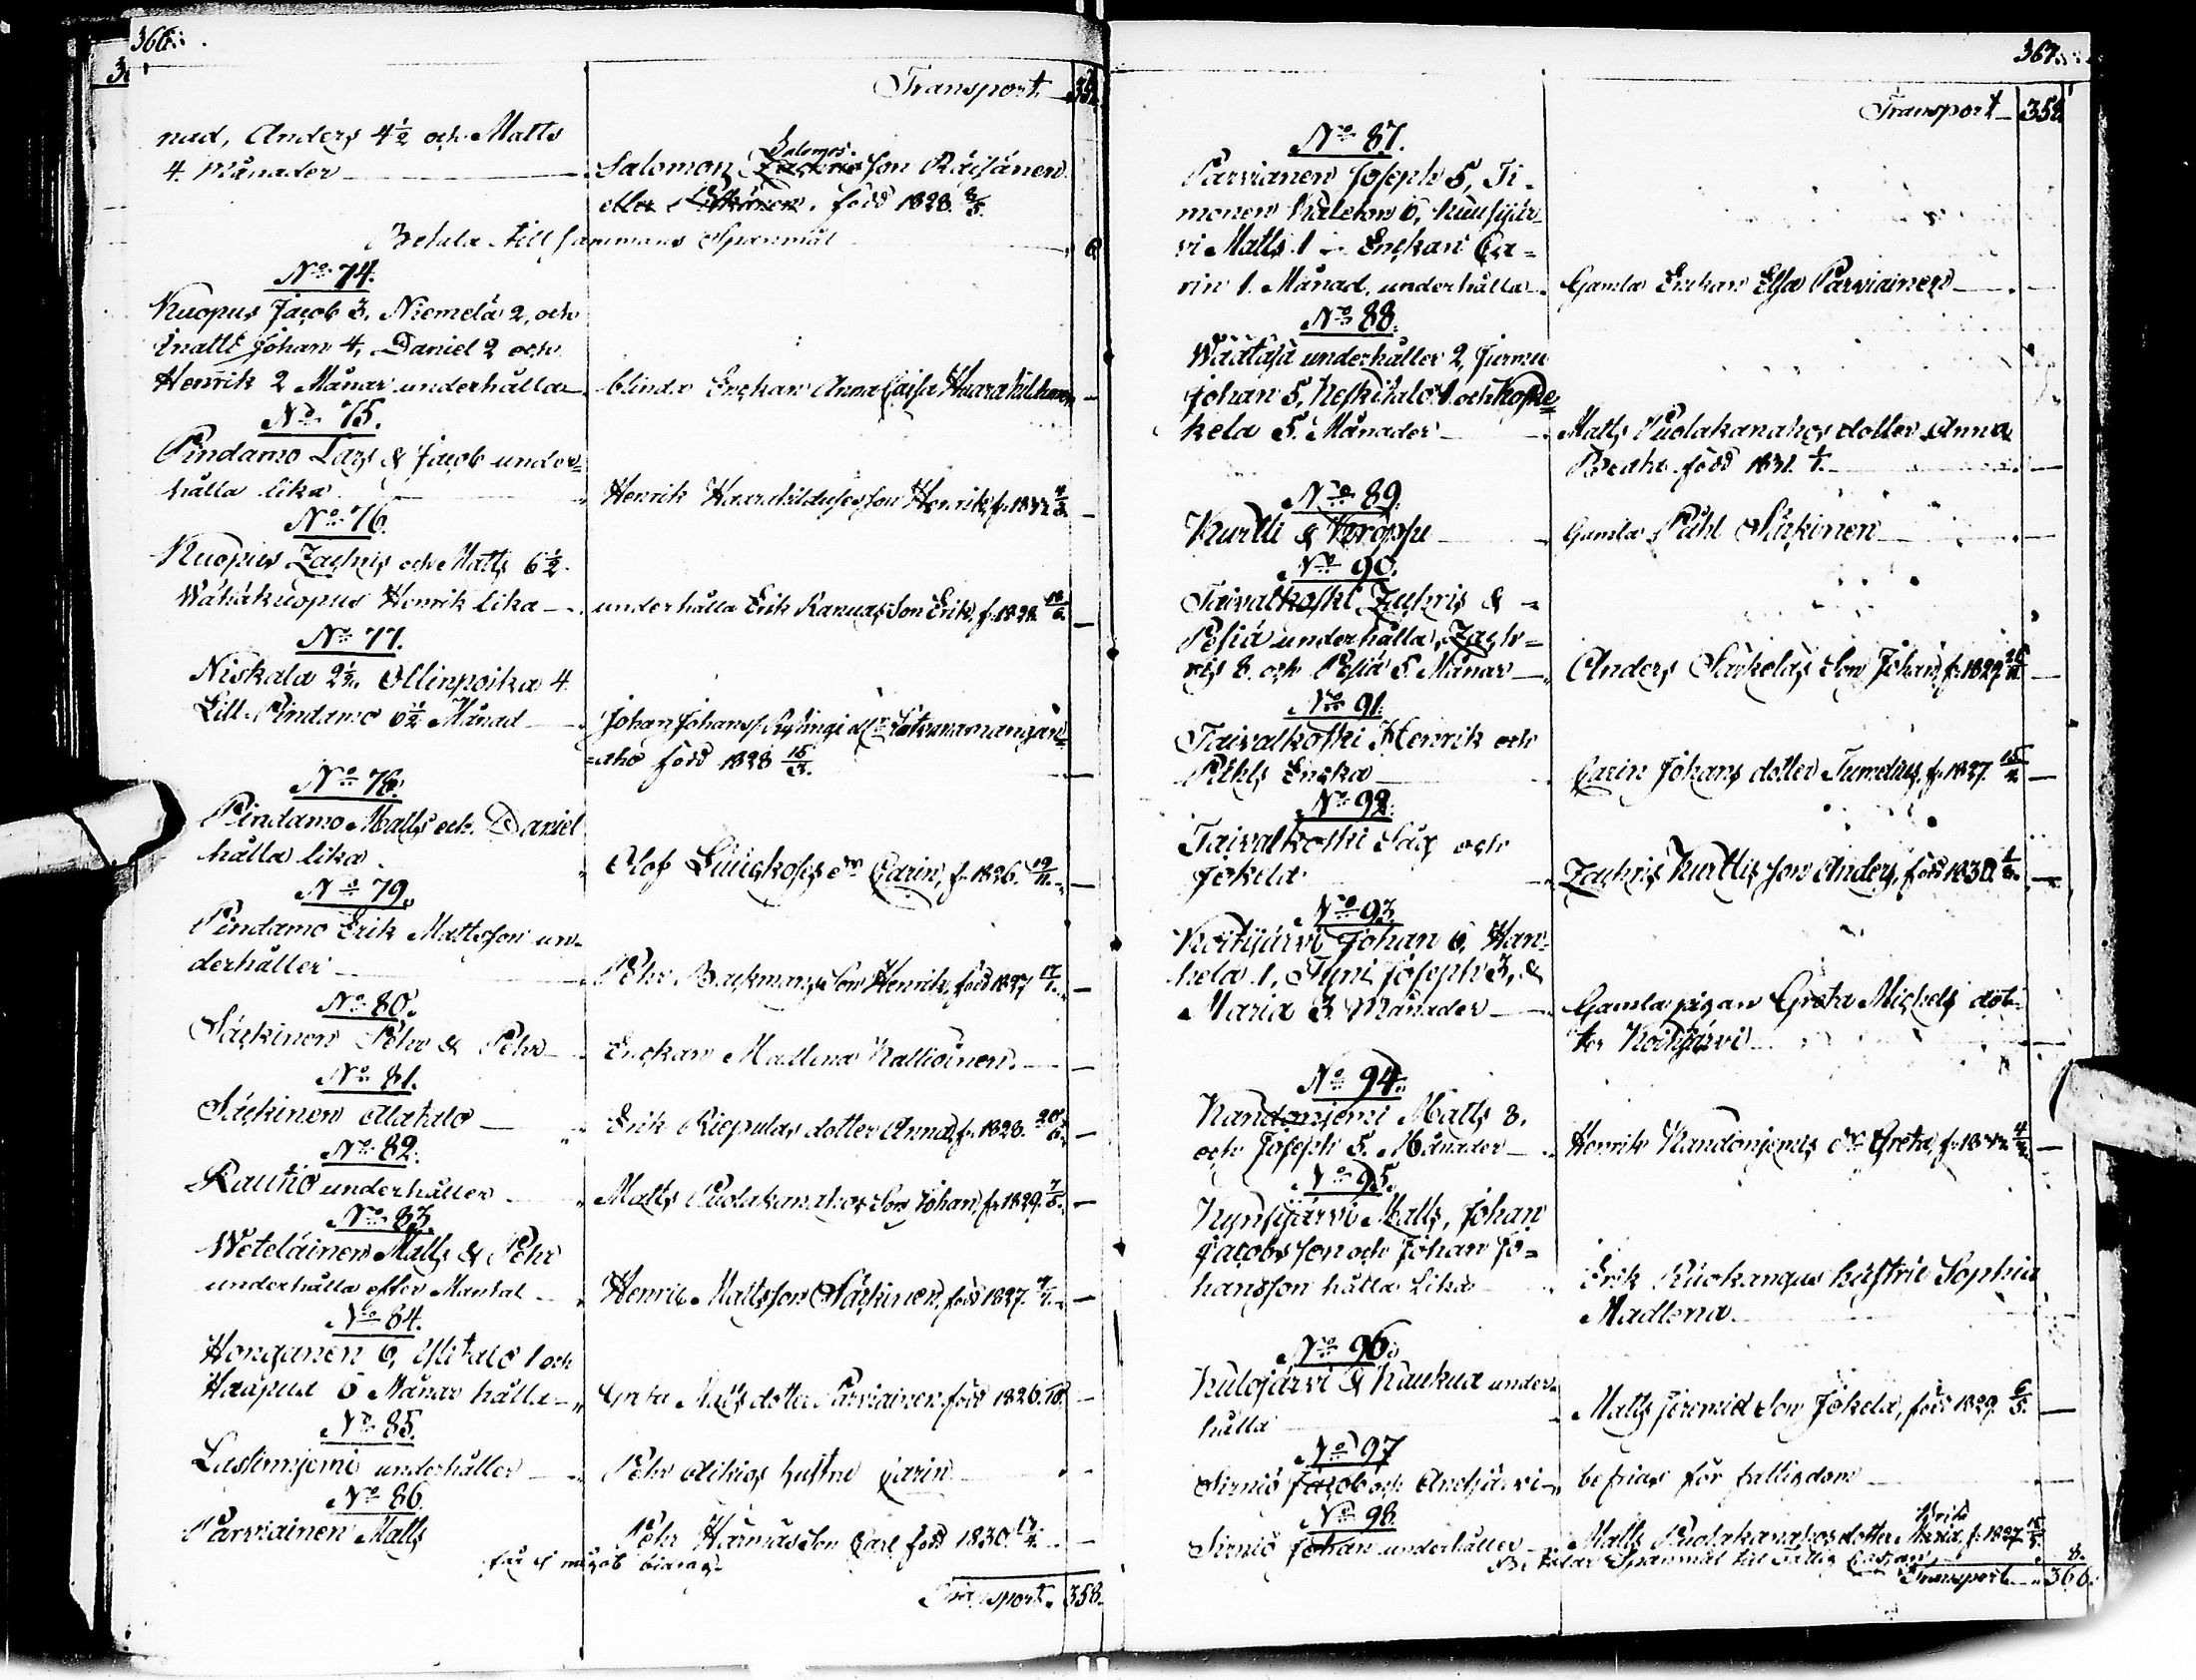 366.
Transport 352.
nad, Anders 4½ och Matts
4. Månader
Salomon Salomos. son Räisänen
eller född 1828. 8/5.
Betala tillsammans Spanmål 6
No 74.
Kuopus Jacob 3, Niemelä 2, och
Inatti Johan 4, Daniel 2 och
Henrik 2 Månar underhålla
blinda Enckan Anna Caisa
No 75.
Pindamo Lars & Jacob under=
hålla lika
Henrik son Henrik, f.
No 76.
Kuopus Zachris och Matts 6½
Wähäkuopus Henrik lika
underhålla Erik Kanuas Son Erik, f. 1828
No 77.
Niskala 2½, Ollinpoika 4
Lill Pindamo 6½ Månad
Johan Johans
=aho född 1828 15/3.
No 78.
Pindamo Matts och Daniel
hålla lika
Olof dr Carin, f. 1826. 19/11.
No 79.
Pindamo Erik Mattsson un=
derhåller
Pehr Backmans Son Henrik, född 1827 17/1.
No 80.
Säckinen Pehr & Pehr
Enckan Madlena Kallioinen.
No 81.
Säckinen Alatalo
Erik Riepulas dotter Anna, f. 1828. 20/6.
No 82.
Rautio underhåller
Matts Puolakanahos Son Johan, f. 1829. 7/5.
No 83.
Weteläinen Matts & Pehr
underhålla efter Mantal
Henric Mattsson Säckinen, född 1827.
No 84.
Honganen 6, Ylitalo 1 och
Haapua 5 Månar hålla
Greta Matts dotter Parviainen född 1826.
No 85.
Lastinnjemi underhåller
Pehr Aikios hustru Carin
No 86.
Parviainen Matts
Pehr Härmäs Son Carl född 1830. 17/2.
får ej något bidrag.
Transport. 358.
367.
Transport 358
No 87.
Parvianen Joseph 5, Ti=
monen 6, Kuusijär=
vi Matts 1 Enckan Ca=
rin 1. Månad, underhålla
Gamla Enckan Elsa Parviainen
No 88.
Wäätäjä underhåller 2, Jurmu
Johan 5, Keskitalo 1 och Koske=
kela 5. Månader
Matts Puolakanahos dotter Anna
Breitha född 1831.
No 89.
Kurtti & Kroppu
Gamla Pähl Säckinen
No 90.
Taivalkoski Zachris &
Pesiä underhålla, Zach=
ris 8. och Pesiä 5 Månar
Anders Särkeläs Son Johan, f. 1829
No 91.
Taivalkoski Henrik och
Pihls Encka
Carin Johans dotter Tumelius, f. 1827. 15/2
No 92.
Taivalkoski Isac och
Jokela
Zachris Kurttis son Anders, född 1830.
No 93.
Koitijärvi Johan 6, Han=
hela 1, Tyni Joseph 3, &
Maria 3 Månader
Gamla pigan Greta Michels dot=
ter Koitijärvi
No 94.
Kandonjemi Matts 8,
och Joseph 5. Månader
Henrik Kandonjemis dr Greta, f.
No 95.
Kynsijärvi Matts, Johan
Jacobsson och Johan Jo=
hansson hålla lika
Erik Ruokangas hustru Sophia
Madlena.
No 96.
Kulojärvi & Kaukua under=
hålla
Matts Jeremia Son Jokela, född 1829. 6/5.
No 97
Sirniö Jacob och
befrias för fattigdom
No 98.
Sirniö Johan underhåller
Matts Puolakanahos dotter Brita f. 1827
Betalar Spanmål till Fattig Cassan 8.
Transport 366.